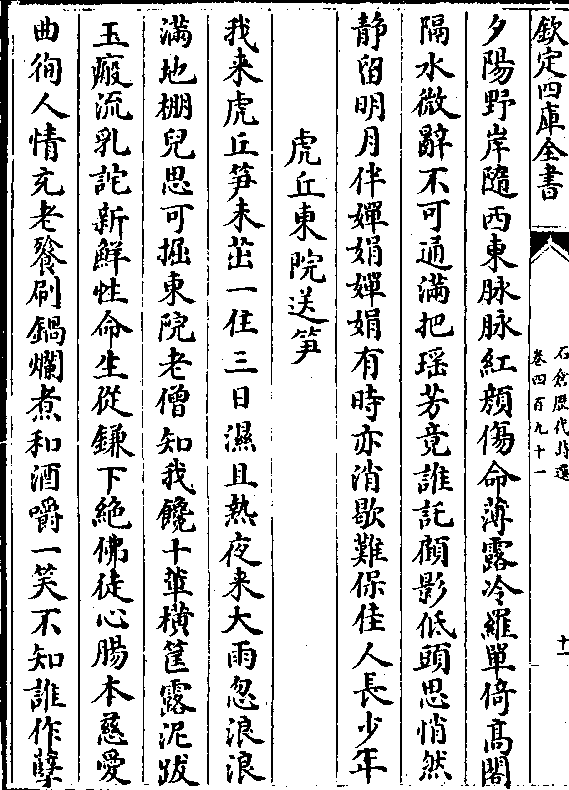 欽定四庫全書
石倉歷代詩選
卷四百九十一
十一
夕陽野岸隨西東脉脉紅顔傷命薄露冷羅單倚髙閣
隔水微辭不可通滿把瑶芳竟誰託顧影低頭思悄然
静留明月伴嬋娟嬋娟有時亦消歇難保佳人長少年
虎丘東院送笋
我来虎丘笋未茁一住三日濕且熱夜来大雨忽浪浪
滿地棚兒思可掘東院老僧知我饞十輩橫筐露泥跋
玉瘢流乳詫新鮮性命生從鎌下絶佛徒心腸本慈愛
曲徇人情充老餮刷鍋爛煮和酒嚼一笑不知誰作孽